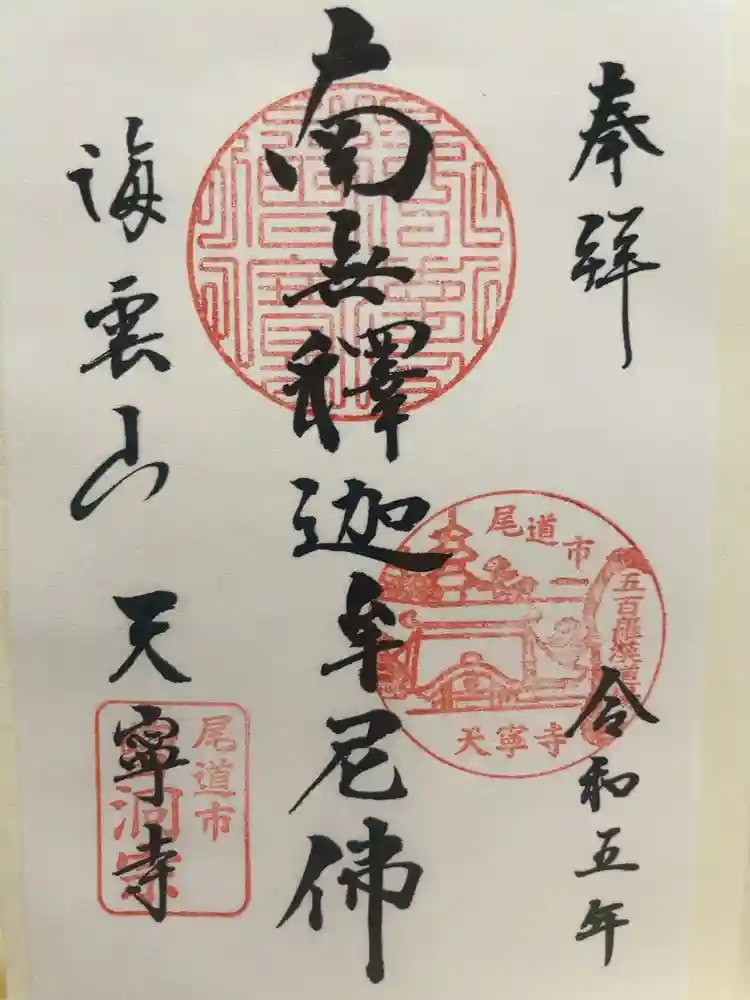 奉拜
令和五年
尾道市
五百羅漢
天寧寺
南無釋迦牟尼佛
海雲山 天寧寺
尾道市
曹洞宗